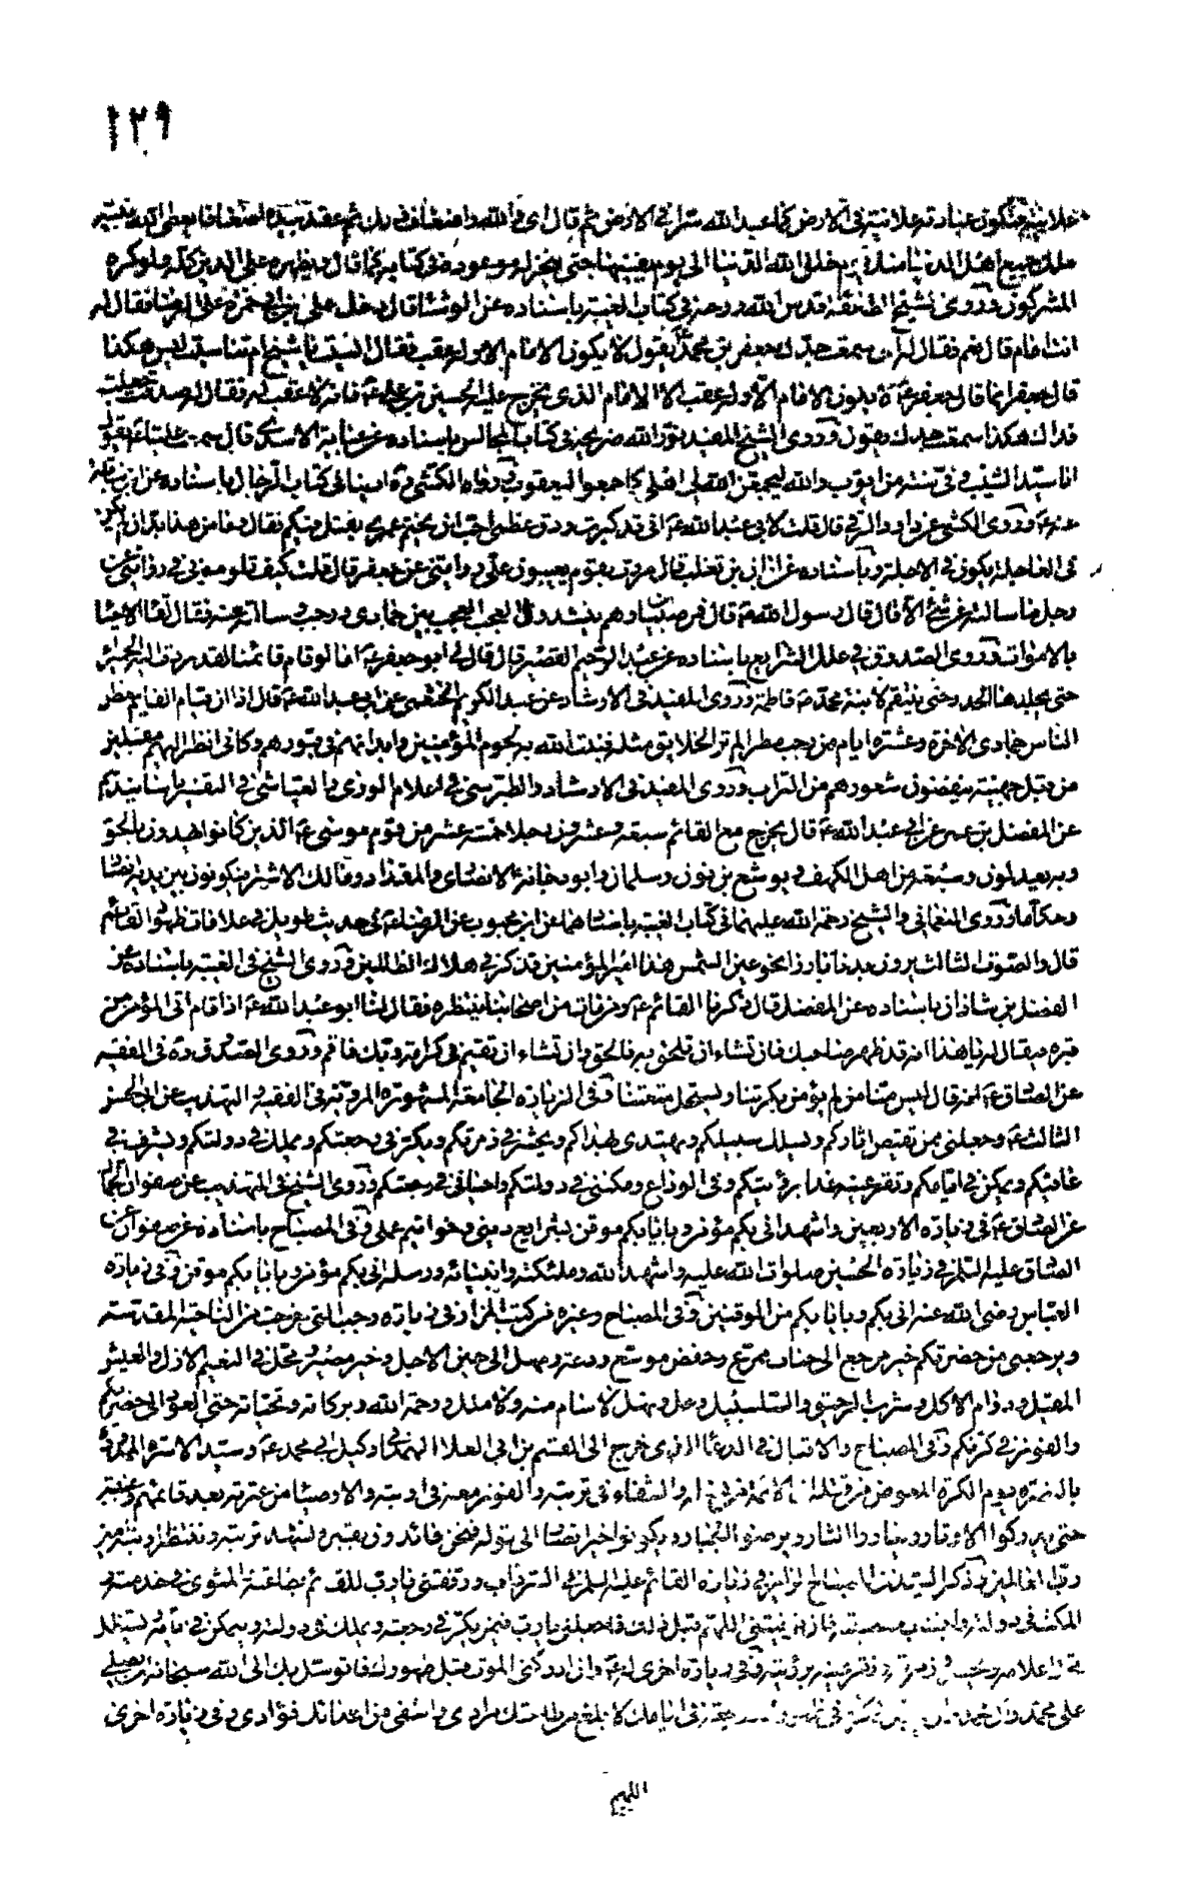 ١٢٩
علانيته فتكون عبادته علانية في الارض كما عبد الله سرا في الارض ثم قال اى والله واضعاف ذلك ثم عقد بيده اضعافا يعطى الله نبيه
ملك جميع اهل الدنيا منذ يوم خلق الله الدنيا الى يوم يفنيها حتى ينجز له موعوده في كتابه كما قال ويظهره على الدين كله ولو كره
المشركون وروى الشيخ الطوسى قدس الله روحه في كتاب الغيبة باسناده عن الوشا قال دخل على بن ابى حمزة على الرضا فقال له
انت امام قال نعم فقال له انى سمعت جدك جعفر بن محمد يقول لا يكون الامام الا وله عقب فقال انسيت يا شيخ ام تناسيت ليس هكذا
قال جعفر انما قال جعفر لا يكون الامام الا وله عقب الا الامام الذى يخرج عليه الحسين بن على فانه لا عقب له فقال له صدقت جعلت
فداك هكذا سمعت جدك يقول وروى الشيخ المفيد نور الله ضريحه في كتاب المجالس باسناده عن عباية الاسدى قال سمعت عليا يقول
انا سيد الشيب وفى سنة من ايوب والله ليجمعن الله لى اهلى كما جمعوا ليعقوب ورواه الكشى ايضا في كتاب الرجال باسناده عن
وروى الكشى عن داود الرقى قال قلت لابى عبد الله انى قد كبرت ودق عظمى احب ان يختم عمرى بقتل فيكم فقال وما من هذا بد ان لم يكن
في العاجلة يكون في الاجلة وباسناده عن ابان بن تغلب قال مررت بقوم يعيبون على روايتى عن جعفر قال قلت كيف تلومونى في روايتى عن
رجل ما سالته عن شئ الا قال قال رسول الله قال فمر صبيان وهم ينشدون العجب العجب بين جمادى ورجب وسالته عنه فقال لقاء الاحياء
بالاموات وروى الصدوق في علل الشرايع باسناده عن عبد الرحيم القصير قال قال لى ابو جعفر اما لو قام قائمنا لقد ردت اليه الحميراء
حتى يجلدها الحد وحتى ينتقم لابنة محمد فاطمة وروى المفيد في الارشاد عن عبد الكريم الخثعمى عن ابى عبد الله قال اذا آن قيام القايم مطر
الناس جمادى الاخرة وعشرة ايام من رجب مطرا لم تر الخلايق مثله فينبت الله به لحوم المؤمنين وابدانهم في قبورهم وكانى انظر اليهم مقبلين
من قبل جهينة ينفضون شعورهم من التراب وروى المفيد في الارشاد والطبرسى في اعلام الورى والعياشى في التفسير باسانيدهم
عن المفضل بن عمر عن ابى عبد الله قال يخرج مع القائم سبعة وعشرون رجلا خمسة عشر من قوم موسى الذين كانوا يهدون بالحق
وبه يعدلون وسبعة من اهل الكهف ويوشع بن نون وسلمان وابو دجانة الانصارى والمقداد ومالك الاشتر فيكونون بين يديه انصارا
وحكاما وروى النعمانى والشيخ رحمة الله عليهما في كتاب الغيبة باسنادهما عن ابن محبوب عن الرضا في حديث طويل في علامات ظهور القائم
قال والصوت الثالث يرون بدنا بارزا نحو عين الشمس هذا امير المؤمنين قد كر في هلاك الظالمين وروى الشيخ في الغيبة باسناده عن
الفضل بن شاذان باسناده عن المفضل قال ذكرنا القائم ومن مات من اصحابنا ينتظره فقال لنا ابو عبد الله اذا قام اتى المؤمن في
قبره فيقال له يا هذا انه قد ظهر صاحبك فان تشاء ان تلحق به فالحق وان تشاء ان تقيم في كرامة ربك فاقم وروى الصدوق في الفقيه
عن الصادق انه قال ليس منا من لم يؤمن بكرتنا ويستحل متعتنا وفى الزيارة الجامعة المشهورة المروية في الفقيه والتهذيب عن ابى الحسن
الثالث وجعلنى ممن يقتص اثاركم ويسلك سبيلكم ويهتدى بهداكم ويحشر في زمرتكم ويكر في رجعتكم ويملك في دولتكم ويشرف في
عافيتكم ويمكن في ايامكم وتقر عينه غدا برؤيتكم وفى الوداع ومكننى في دولتكم واحيانى في رجعتكم وروى الشيخ في التهذيب عن صفوان الجمال
عن الصادق في زيارة الاربعين واشهد انى بكم مؤمن وبايابكم موقن بشرايع دينى وخواتيم عملى وفى المصباح باسناده عن صفوان عن
الصادق عليه السلام في زيارة الحسين صلوات الله عليه واشهد الله وملئكته وانبيائه ورسله انى بكم مؤمن وبايابكم موقن وفى زيارة
العباس رضى الله عنه انى بكم وبايابكم من الموقنين وفى المصباح وغيره من كتب المزار في زيارة رجب التى خرجت من الناحية المقدسة
ويرجعنى من حضرتكم خير مرجع الى جناب ممرع وخفض موسع ودعة ومهل الى حين الاجل وخير مصير ومحل في النعيم الازل والعيش
المقتبل ودوام الاكل وشرب الرحيق والسلسبيل وعل ونهل لا سام منه ولا ملل ورحمة الله وبركاته وتحياته حتى العود الى حضرتكم
والفوز في كرتكم وفى المصباح والاقبال في الدعاء الذى خرج الى القسم بن ابى العلا الهمدانى وكيل ابى محمد وسيد الاسرة الممدود
بالنصرة يوم الكرة المعوض من قتله ان الائمة من نسله والشفاء في تربته والفوز معه في اوبته والاوصيا من عترته بعد قائمهم وغيبته
حتى يدركوا الاوتار ويثاروا الثار ويرضوا الجبار ويكونوا خير انصار الى قوله فنحن عائذون بقبره نشهد تربته وننتظر اوبته امين
رب العالمين وذكر السيد في مصباح الزائر في زيارة القائم عليه السلام في السرداب ووفقنى يا رب للقيام بطاعته المثوى في خدمته
المكث في دولته واجتناب معصيته فان توفيتنى اللهم قبل ذلك فاجعلنى يا رب فيمن يكر في رجعته ويملك في دولته ويمكن في ايامه ويستظل
تحت اعلامه ويحشر في زمرته وتقر عينه برؤيته وفى زيارة اخرى له وان ادركنى الموت قبل ظهورك فاتوسل بك الى الله سبحانه ان يصلى
على محمد وال محمد وان يجعل لى كرة في ظهورك ورجعة في ايامك لابلغ من طاعتك مرادى واشفى من اعدائك فؤادى وفى زيارة اخرى
اللهم